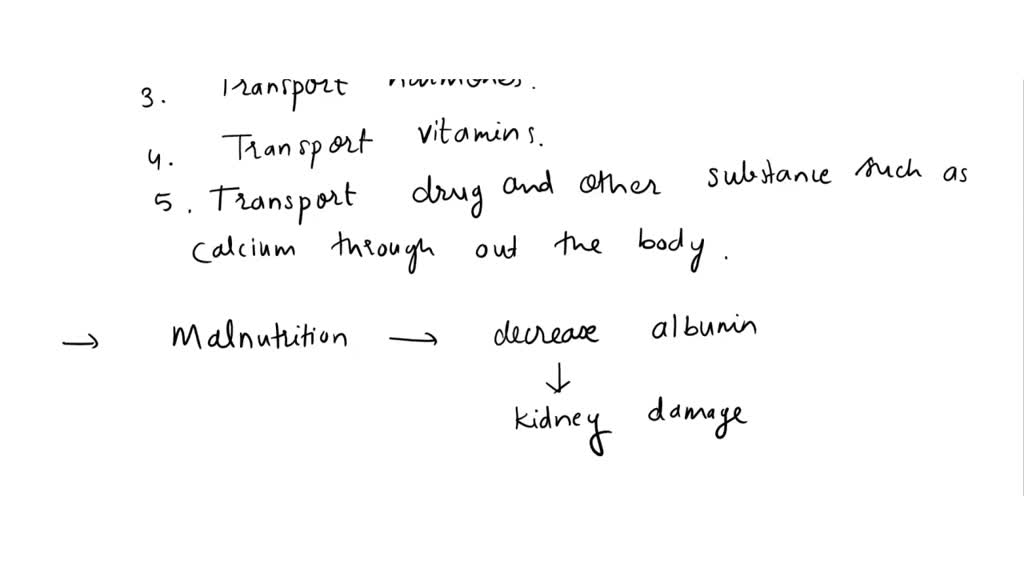 3. Transport hormones.
4. Transport vitamins.
5. Transport drug and other substance such as
calcium through out the body.
→ Malnutrition → decrease albumin
↓
kidney damage